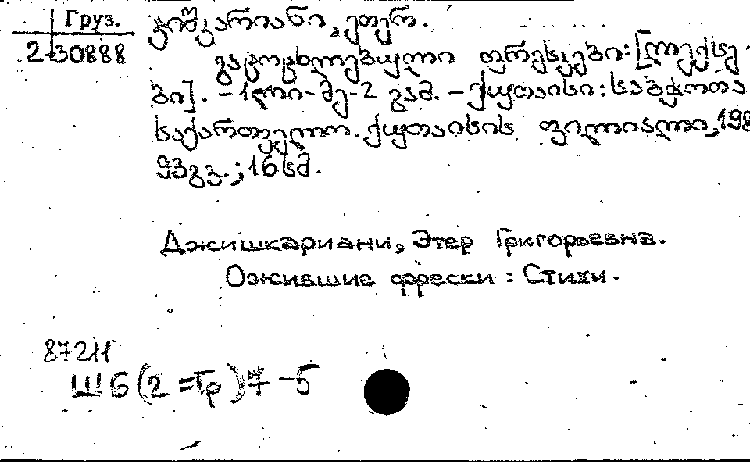 Груз.
2-30888
ჯიშკარიანი, ეთერ.
გაცოცხლებული ფრესკები: [ლექსე-
ბი]. - 1ლი-მე-2 გამ. - ქუთაისი: საბჭოთა
საქართველო. ქუთაისის ფილიალი, 198
93გვ.; 16სმ.
Джишкариани, Этер Григорьевна.
Ожившие фрески : Стихи.
87211
Ш6(2=Гр)7-5